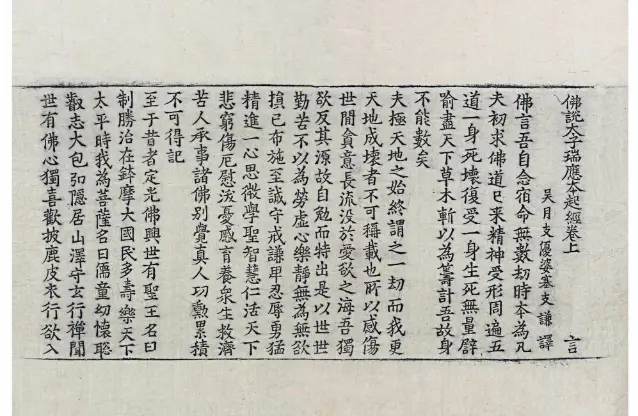 佛說太子瑞應本起經卷上　言
吳月支優婆塞支謙譯
佛言吾自念宿命無數劫時本為凡
夫初求佛道已来精神受形周遍五
道一身死壞復受一身生死無量譬
喻盡天下草木斬以為籌計吾故身
不能數矣
夫極天地之始終謂之一劫而我更
天地成壞者不可稱載也所以感傷
世間貪意長流沒於愛欲之海吾獨
欲反其源故自勉而特出是以世世
勤苦不以為勞虛心樂靜無為無欲
損已布施至誠守戒謙卑忍辱勇猛
精進一心思微學聖智慧仁活天下
悲窮傷厄慰沃憂慼育養衆生救濟
苦人承事諸佛別覺真人功勲累積
不可得記
至于昔者定光佛興世有聖王名曰
制勝治在鉢摩大國民多壽樂天下
太平時我為菩薩名曰儒童幼懷聡
叡志大包弘隠居山澤守玄行禪聞
世有佛心獨喜歡披鹿皮衣行欲入